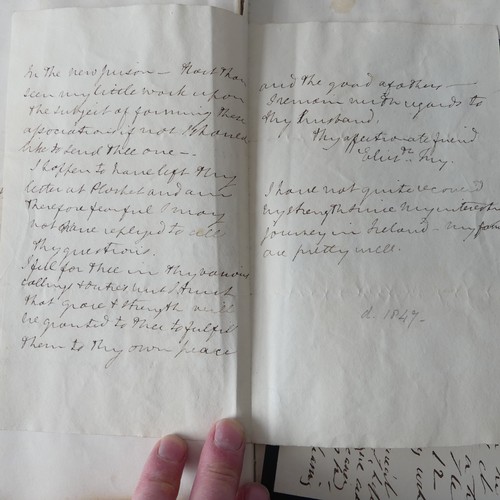 in the new prison — Hast thou
seen my little work upon
the subject of forming these
associations if not I should
like to send thee one —
I happen to have left thy
letter at Plashet and am
therefore fearful I may
not have replyed to all
thy questions.
I feel for thee in thy various
callings & duties but I trust
that grace & strength will
be granted to thee to fulfil
them to thy own peace
and the good of others —
I remain with regards to
thy husband,
Thy affectionate friend
Eliz:th Fry.
I have not quite recovered
my strength since my interesting
journey in Ireland — my family
are pretty well.
d. 1847 —